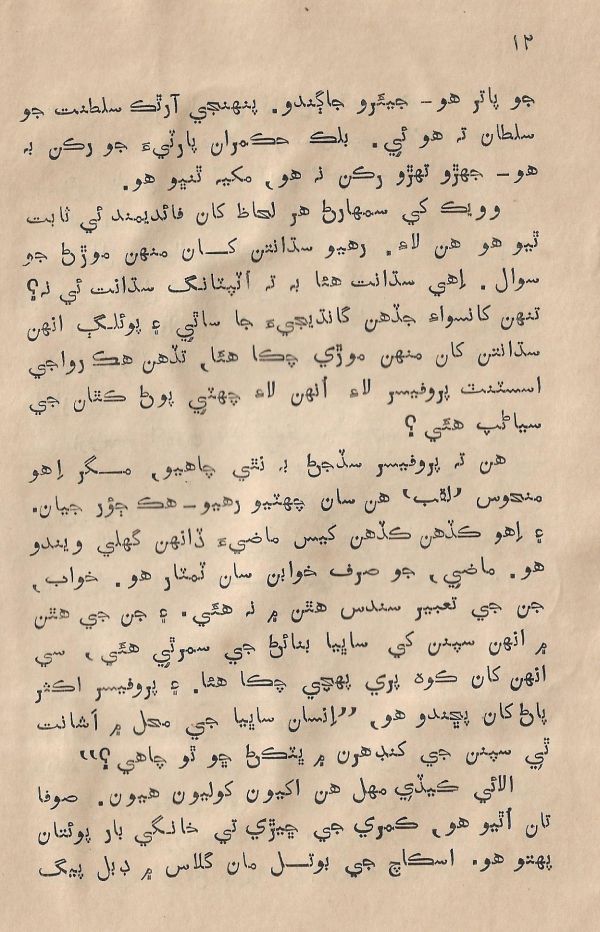 ١٢
جو پاتر هو- جيئرو جاڳندو. پنهنجي آرٿڪ سلطنت جو
سلطان ته هو ئي. بلڪ حڪمران پارٽيءَ جو رڪن به
هو- جهڙو تهڙو رڪن نه هو, مکيه ٿنڀو هو.
وويڪ کي سمهارڻ هر لحاظ کان فائديمند ئي ثابت
ٿيو هو هن لاءِ. رهيو سڌانتن کان منهن موڙڻ جو
سوال. اِهي سڌانت هئا به ته اُٽپٽانگ سڌانت ئي نه؟
تنهن کانسواءِ جڏهن گانڌيجيءَ جا ساٿي ۽ پوئلڳ انهن
سڌانتن کان منهن موڙي چڪا هئا, تڏهن هڪ رواجي
اسسٽنٽ پروفيسر لاءِ اُنهن لاءِ چهٽي پوڻ ڪٿان جي
سياڻپ هئي؟
هن ته پروفيسر سڏجڻ به نٿي چاهيو, مگر اِهو
منحوس ’لقب‘ هن سان چهٽيو رهيو-هڪ ڄؤر جيان.
۽ اِهو ڪڏهن ڪڏهن کيس ماضيءَ ڏانهن گهلي ويندو
هو. ماضي, جو صرف خوابن سان ٽمٽار هو. خواب,
جن جي تعبير سندس هٿن ۾ نه هئي. ۽ جن جي هٿن
۾ انهن سپنن کي ساڀيا بنائڻ جي سمرٿي هئي, سي
انهن کان ڪوهه پري پهچي چڪا هئا. ۽ پروفيسر اڪثر
پاڻ کان پڇندو هو, ”اِنسان ساڀيا جي محل ۾ اَشانت
ٿي سپنن جي کنڊهرن ۾ ڀٽڪڻ ڇو ٿو چاهي؟“
الائي ڪيڏي مهل هن اکيون کوليون هيون. صوفا
تان اُٿيو هو, ڪمري جي ڇيڙي تي خانگي بار پوئتان
پهتو هو. اسڪاچ جي بوتل مان گلاس ۾ ڊبل پيگ